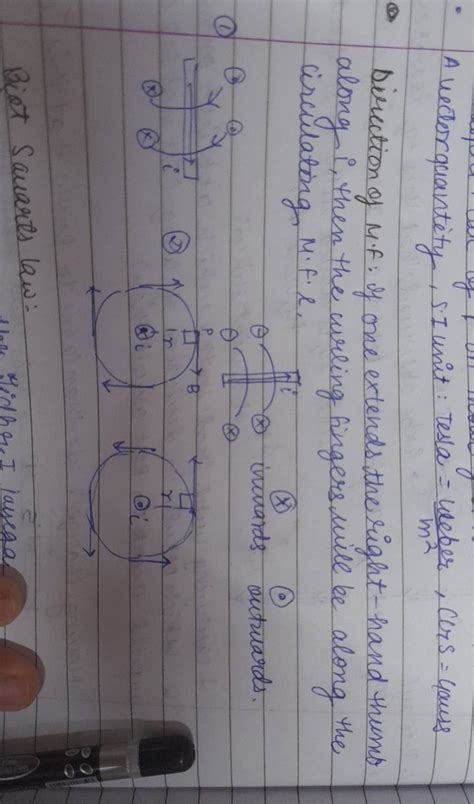 A vector quantity, S.I unit: Tesla = weber/m², CGS = Gauss
Direction of M.F: If one extends the right-hand thumb
along i, then the curling fingers will be along the
circulating M.F l.
i
⊗ inwards ⊙ outwards.
①
i
②
P
B
r
i
r
i
Biot Savarts law: